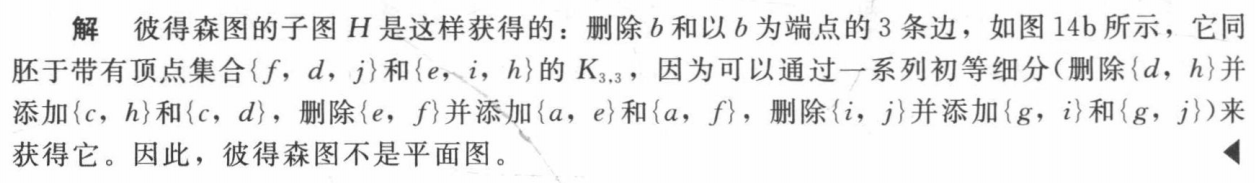 解 彼得森图的子图 H 是这样获得的：删除 b 和以 b 为端点的 3 条边，如图 14b 所示，它同
胚于带有顶点集合{f，d，j}和{e，i，h}的 K₃,₃，因为可以通过一系列初等细分(删除{d，h}并
添加{c，h}和{c，d}，删除{e，f}并添加{a，e}和{a，f}，删除{i，j}并添加{g，i}和{g，j})来
获得它。因此，彼得森图不是平面图。 ◀